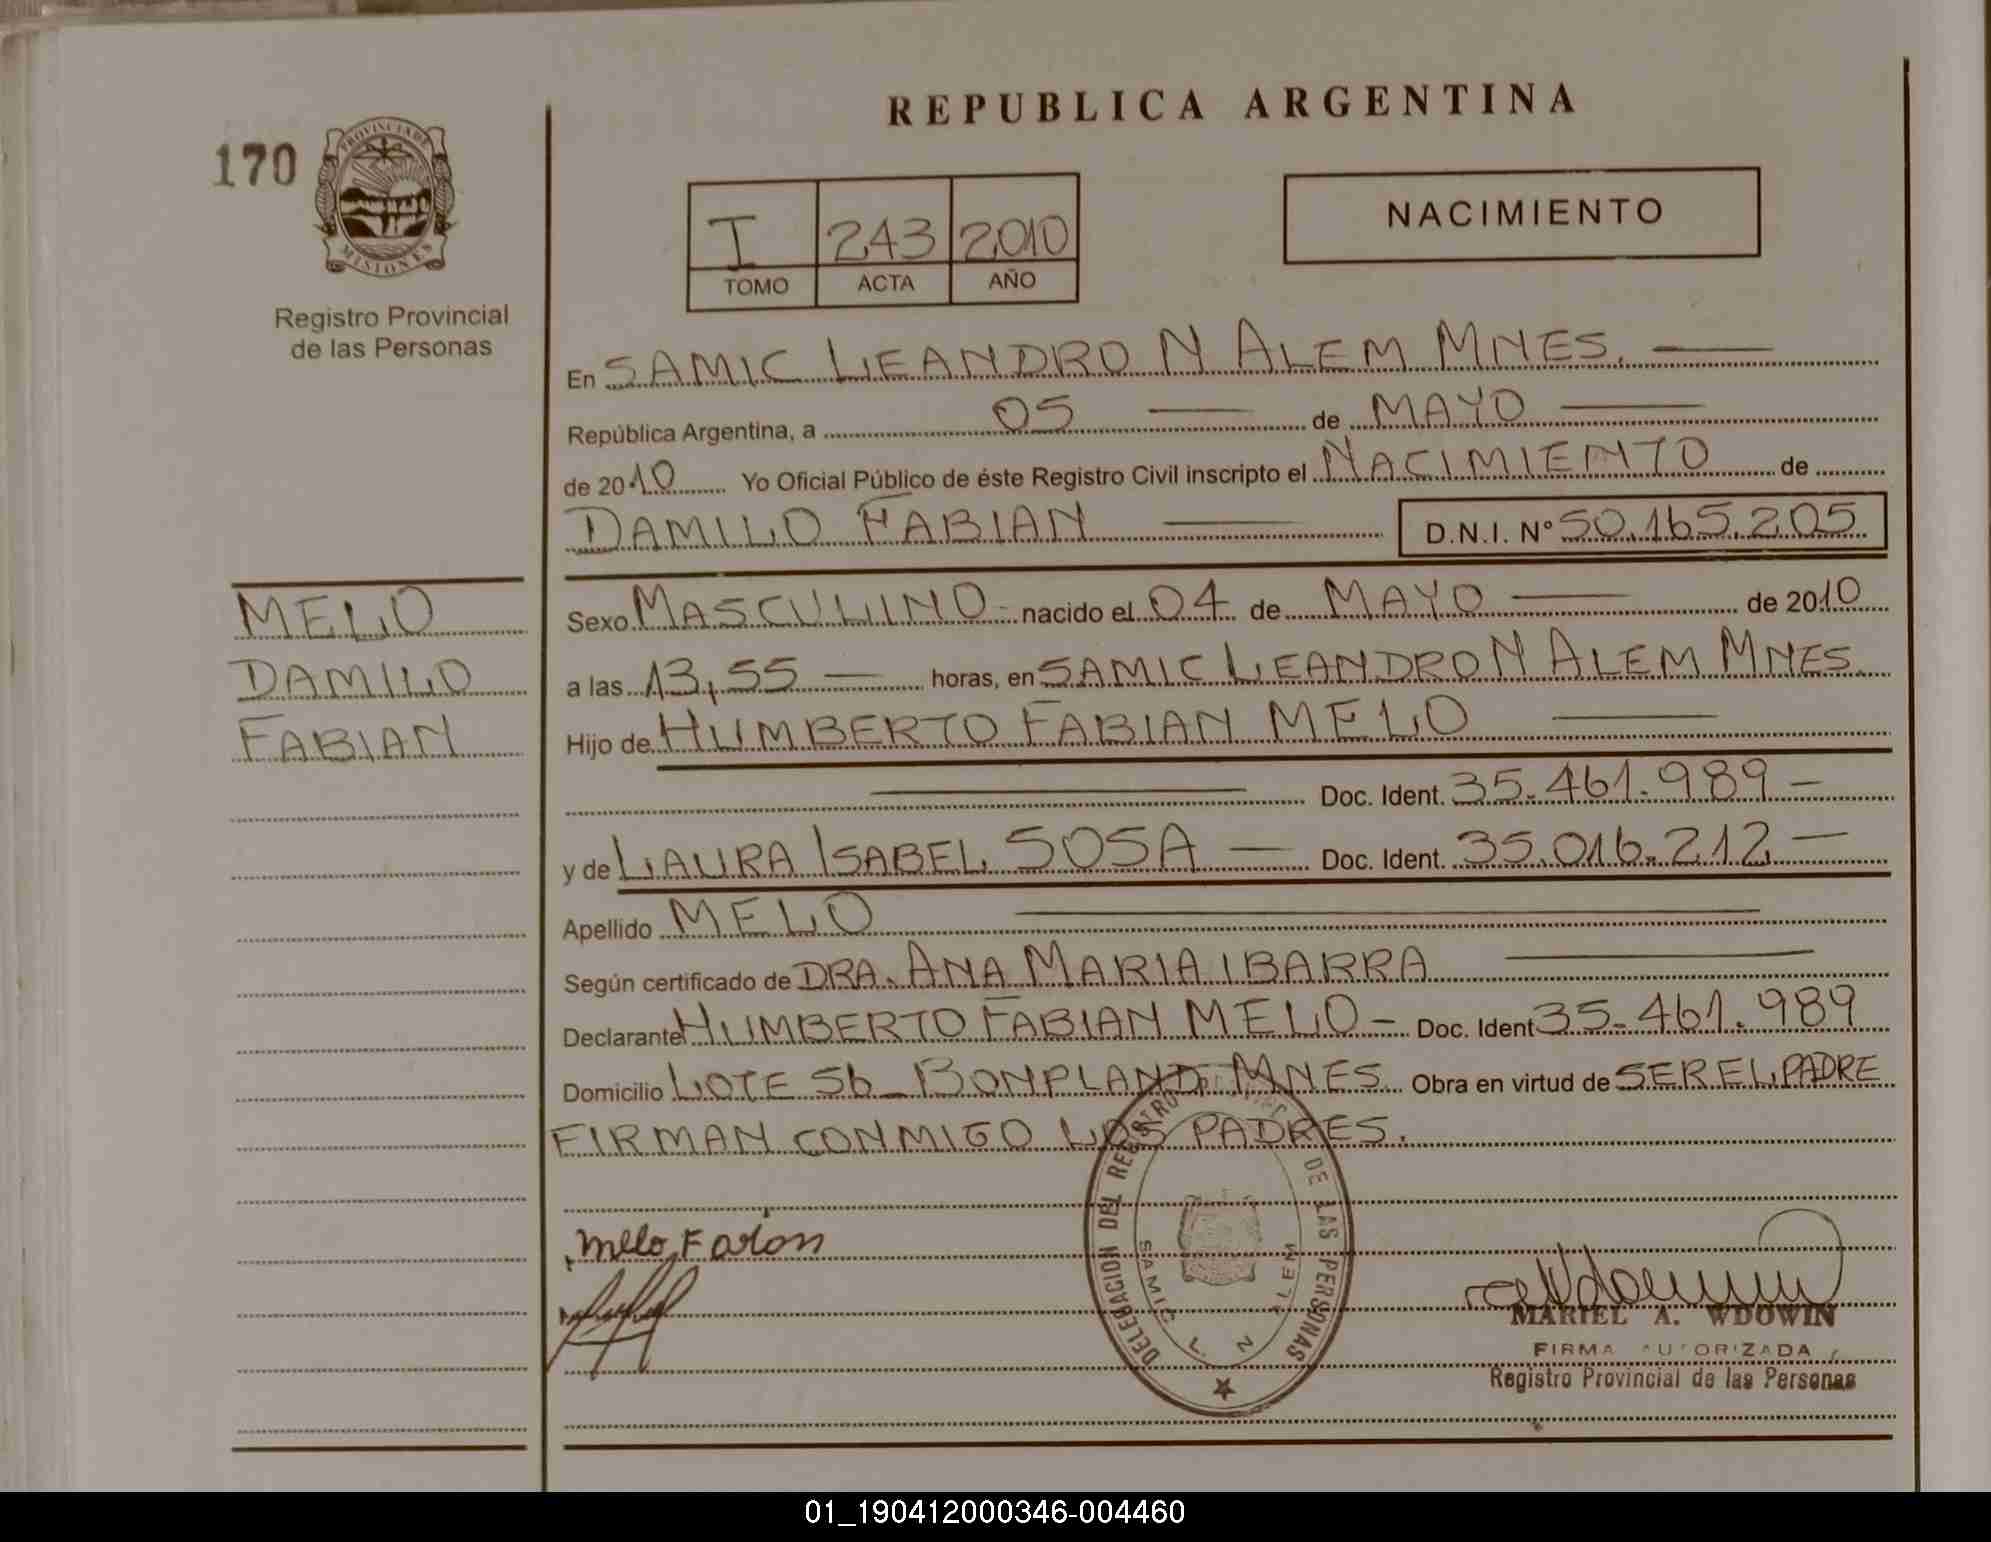 REPUBLICA ARGENTINA
170
PROVINCIA DE
MISIONES
Registro Provincial
de las Personas
I 243 2010
TOMO ACTA AÑO
NACIMIENTO
En SAMIC LEANDRO N ALEM MNES.
República Argentina, a 05 de MAYO
de 2010 Yo Oficial Público de éste Registro Civil inscripto el NACIMIENTO de
DAMILO FABIAN D.N.I. Nº 50.165.205
MELO
DAMILO
FABIAN
Sexo MASCULINO nacido el 04 de MAYO de 2010
a las 13,55 horas, en SAMIC LEANDRO N ALEM MNES.
Hijo de HUMBERTO FABIAN MELO
Doc. Ident. 35.461.989
y de LAURA ISABEL SOSA Doc. Ident. 35.016.212
Apellido MELO
Según certificado de DRA. ANA MARIA IBARRA
Declarante HUMBERTO FABIAN MELO Doc. Ident 35.461.989
Domicilio LOTE 56 - BONPLAND MNES Obra en virtud de SER EL PADRE
FIRMAN CONMIGO LOS PADRES.
Melo
DELEGACION DEL REGISTRO DE LAS PERSONAS
SAMIC L. N ALEM
MARIEL A. WDOWIN
FIRMA AUTORIZADA
Registro Provincial de las Personas
01_190412000346-004460